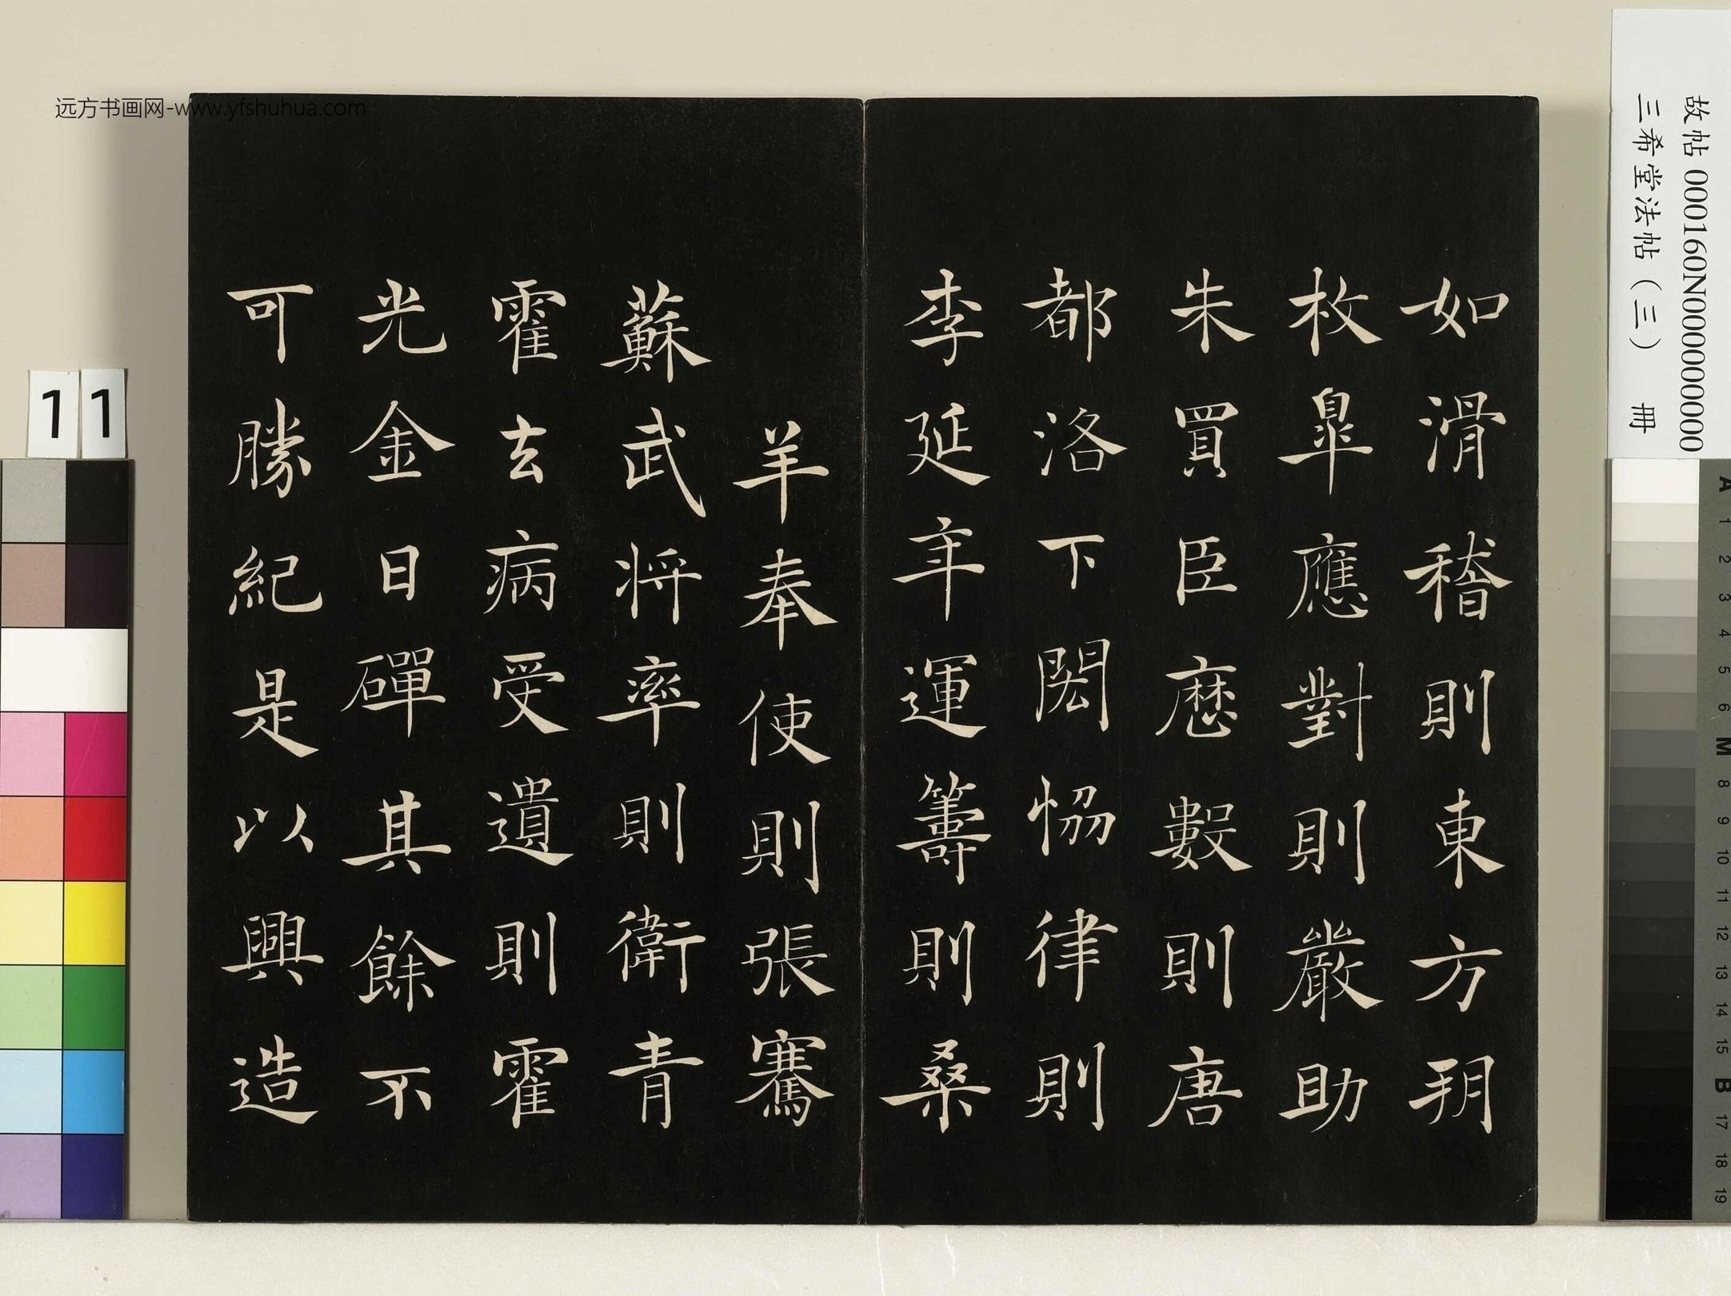 如滑稽則東方朔
枚皐應對則嚴助
朱買臣厯數則唐
都洛下閎恊律則
李延年運籌則桑
羊奉使則張騫
蘇武将率則衛青
霍去病受遺則霍
光金日磾其餘不
可勝紀是以興造
远方书画网-www.yfshuhua.com
故帖 000160N000000000
三希堂法帖（三） 册
11
A 1 2 3 4 5 6 M 8 9 10 11 12 13 14 15 B 17 18 19